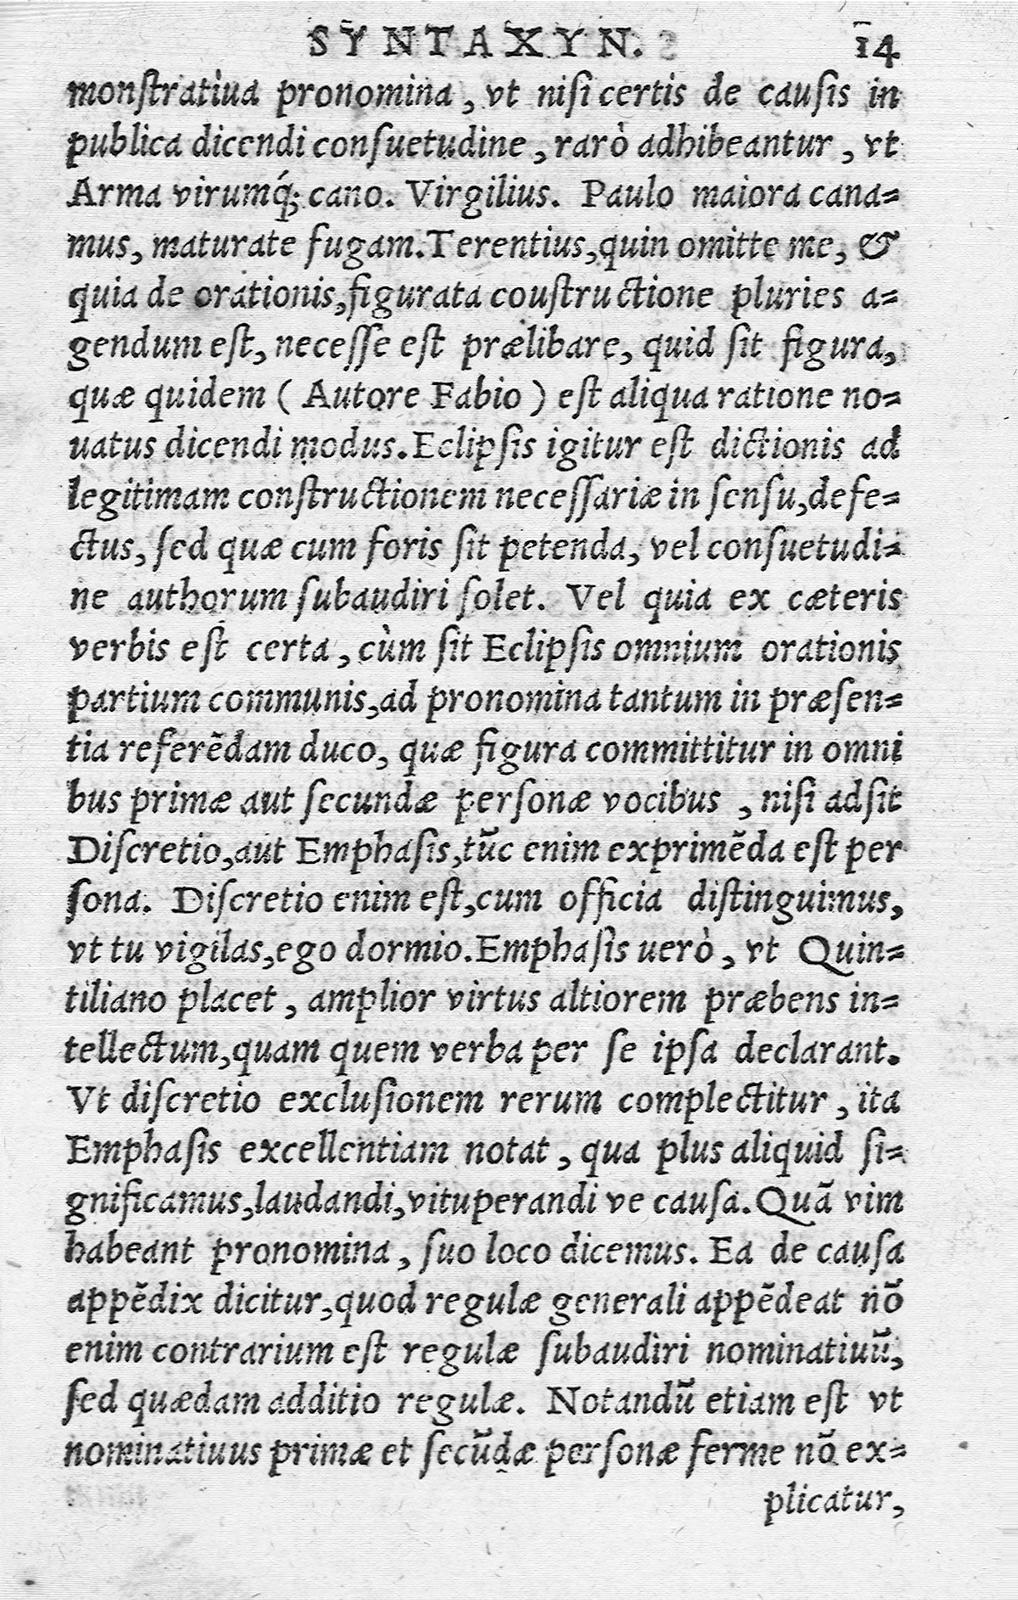 SYNTAXYN. 14
monſtratiua pronomina, vt niſi certis de cauſis in
publica dicendi conſuetudine, rarò adhibeantur, vt
Arma virumq́; cano. Virgilius. Paulo maiora cana-
mus, maturate fugam. Terentius, quin omitte me, &
quia de orationis, figurata couſtructione pluries a-
gendum eſt, neceſſe eſt prælibare, quid ſit figura,
quæ quidem ( Autore Fabio ) eſt aliqua ratione no-
uatus dicendi modus. Eclipſis igitur eſt dictionis ad
legitimam conſtructionem neceſſariæ in ſenſu, defe-
ctus, ſed quæ cum foris ſit petenda, vel conſuetudi-
ne authorum ſubaudiri ſolet. Vel quia ex cæteris
verbis eſt certa, cùm ſit Eclipſis omnium orationis
partium communis, ad pronomina tantum in præſen-
tia referẽdam duco, quæ figura committitur in omni
bus primæ aut ſecundæ perſonæ vocibus, niſi adſit
Diſcretio, aut Emphaſis, tũc enim exprimẽda eſt per
ſona. Diſcretio enim eſt, cum officia diſtinguimus,
vt tu vigilas, ego dormio. Emphaſis uerò, vt Quin-
tiliano placet, amplior virtus altiorem præbens in-
tellectum, quam quem verba per ſe ipſa declarant.
Vt diſcretio excluſionem rerum complectitur, ita
Emphaſis excellentiam notat, qua plus aliquid ſi-
gnificamus, laudandi, vituperandi ve cauſa. Quã vim
habeant pronomina, ſuo loco dicemus. Ea de cauſa
appẽdix dicitur, quod regulæ generali appẽdeat nõ
enim contrarium eſt regulæ ſubaudiri nominatiuũ,
ſed quædam additio regulæ. Notandũ etiam eſt vt
nominatiuus primæ et ſecũdæ perſonæ ferme nõ ex-
plicatur,